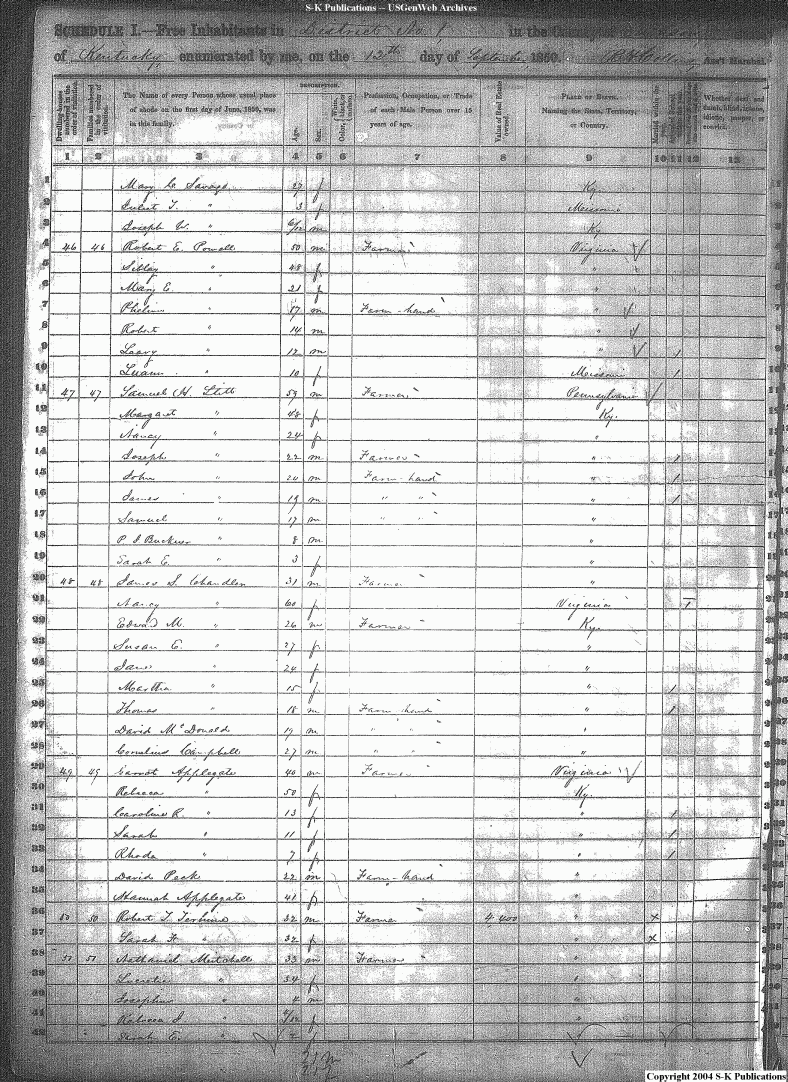 S-K Publications -- USGenWeb Archives
SCHEDULE I.—Free Inhabitants in District No. 1 in the County of
of Kentucky enumerated by me, on the 13th day of September 1850. Ass't Marshal.
Dwelling-houses numbered in the order of visitation.
Families numbered in the order of visitation.
The Name of every Person whose usual place of abode on the first day of June, 1850, was in this family.
DESCRIPTION.
Age.
Sex.
White, black, or mulatto.
Color,
Profession, Occupation, or Trade of each Male Person over 15 years of age.
Value of Real Estate owned.
PLACE OF BIRTH. Naming the State, Territory, or Country.
Married within the year.
Whether deaf and dumb, blind, insane, idiotic, pauper, or convict.
1 2 3 4 5 6 7 8 9 10 11 12 13
1 Mary C. Savage 27 f Ky.
2 Juliet T. " 3 f Missouri
3 Joseph W. " 6/12 m Ky
4 46 46 Robert E. Powell 50 m Farmer Virginia
5 " 48 f "
6 Mary E. " 21 f "
7 " 17 m Farm hand "
8 Robert " 14 m "
9 " 12 m " /
10 Luann " 10 f Missouri /
11 47 47 Samuel H. Stitt 59 m Farmer Pennsylvania
12 Margaret " 48 f Ky.
13 Nancy " 24 f "
14 Joseph " 22 m Farmer " /
15 John " 20 m Farm hand " /
16 James " 19 m " " " /
17 Samuel " 17 m " " "
18 P. S Buckner " 8 m "
19 Sarah E. " 3 f "
20 48 48 James S. Chandler 31 m Farmer "
21 Nancy " 60 f Virginia 1
22 Edward M. " 26 m Farmer Ky.
23 Susan E. " 27 f "
24 Jane " 24 f "
25 Martha " 15 f " /
26 Thomas " 18 m Farm hand " /
27 David McDonald 19 m " " "
28 Cornelius Campbell 27 m " " "
29 49 49 Garrot Applegate 40 m Farmer Virginia
30 Rebecca " 50 f Ky.
31 Caroline R. " 13 f " /
32 Sarah " 11 f " /
33 Rhoda " 7 f " /
34 David Peck 22 m Farm hand "
35 Hannah Applegate 41 f "
36 50 50 Robert T. 32 m Farmer 4,400 " x
37 Sarah F. " 32 f " x
38 51 51 Nathaniel Mitchell 33 m Farmer "
39 Lucretia " 34 f "
40 Josephus " 4 m "
41 Rebecca J " f "
42 Sarah E. " 2 f "
Copyright 2004 S-K Publications